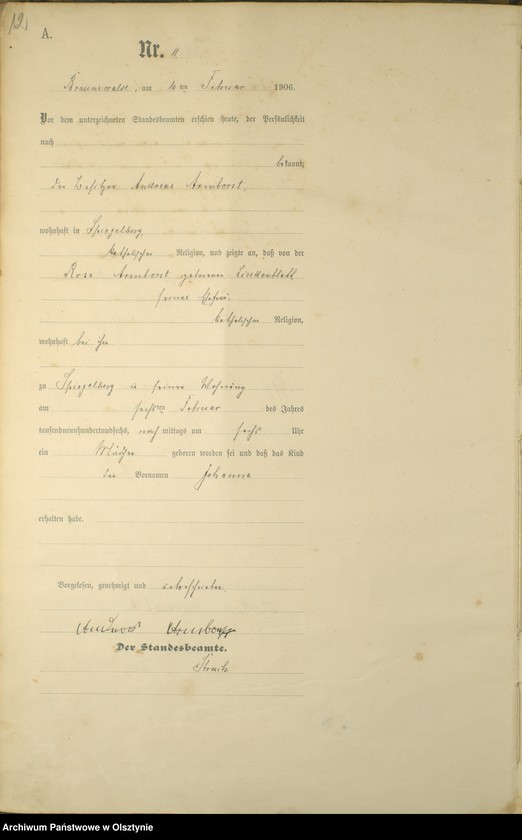 12
A.
Nr. 11
Braunswalde, am 10ten Februar 1906.
Vor dem unterzeichneten Standesbeamten erschien heute, der Persönlichkeit
nach
bekannt,
der Besitzer Andreas Armborst,
wohnhaft in Spiegelberg,
katholischer Religion, und zeigte an, daß von der
Rosa Armborst geborenen Lindenblatt
seiner Ehefrau,
katholischer Religion,
wohnhaft bei ihm
zu Spiegelberg in seiner Wohnung
am sechsten Februar des Jahres
tausendneunhundertundsechs, nachmittags um sechs Uhr
ein Mädchen geboren worden sei und daß das Kind
den Vornamen Johanna
erhalten habe.
Vorgelesen, genehmigt und unterschrieben.
Andreas Armborst
Der Standesbeamte.
Archiwum Państwowe w Olsztynie